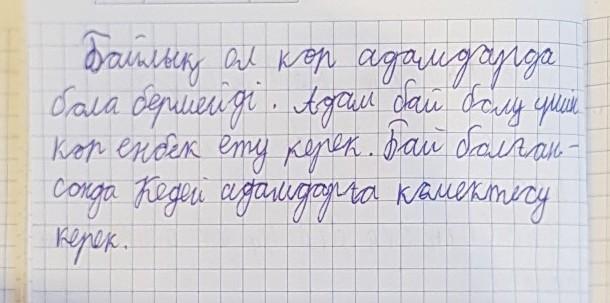 Байлық ол көп адамдарда
бола бермейді. Адам бай болу үшін
көп енбек ету керек. Бай болған-
сонда Кедей адамдарға камектесу
керек.